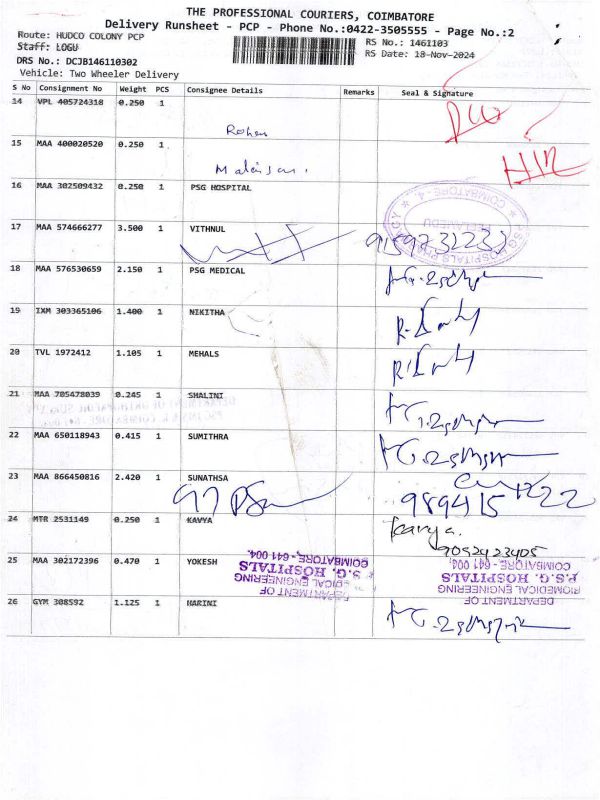 THE PROFESSIONAL COURIERS, COIMBATORE
Delivery Runsheet - PCP - Phone No.:0422-3505555 - Page No.:2
Route: HUDCO COLONY PCP
RS No.: 1461103
Staff: LOGU
RS Date: 18-Nov-2024
DRS No.: DCJB146110302
Vehicle: Two Wheeler Delivery
S No Consignment No Weight PCS Consignee Details Remarks Seal & Signature
14 VPL 405724318 0.250 1
Rohan
15 MAA 400020520 0.250 1
16 MAA 302509432 0.250 1 PSG HOSPITAL
COIMBATORE - 4
17 MAA 574666277 3.500 1 VITHNUL
9159732232
18 MAA 576530659 2.150 1 PSG MEDICAL
19 IXM 303365106 1.400 1 NIKITHA
20 TVL 1972412 1.105 1 MEHALS
21 MAA 705478039 0.245 1 SHALINI
22 MAA 650118943 0.415 1 SUMITHRA
23 MAA 866450816 2.420 1 SUNATHSA
24 MTR 2531149 0.250 1 KAVYA
Kavya.
9052423405
25 MAA 302172396 0.470 1 YOKESH
DEPARTMENT OF
BIOMEDICAL ENGINEERING
P.S.G. HOSPITALS
COIMBATORE - 641 004.
DEPARTMENT OF
BIOMEDICAL ENGINEERING
P.S.G. HOSPITALS
COIMBATORE - 641 004.
26 GYM 308592 1.125 1 HARINI